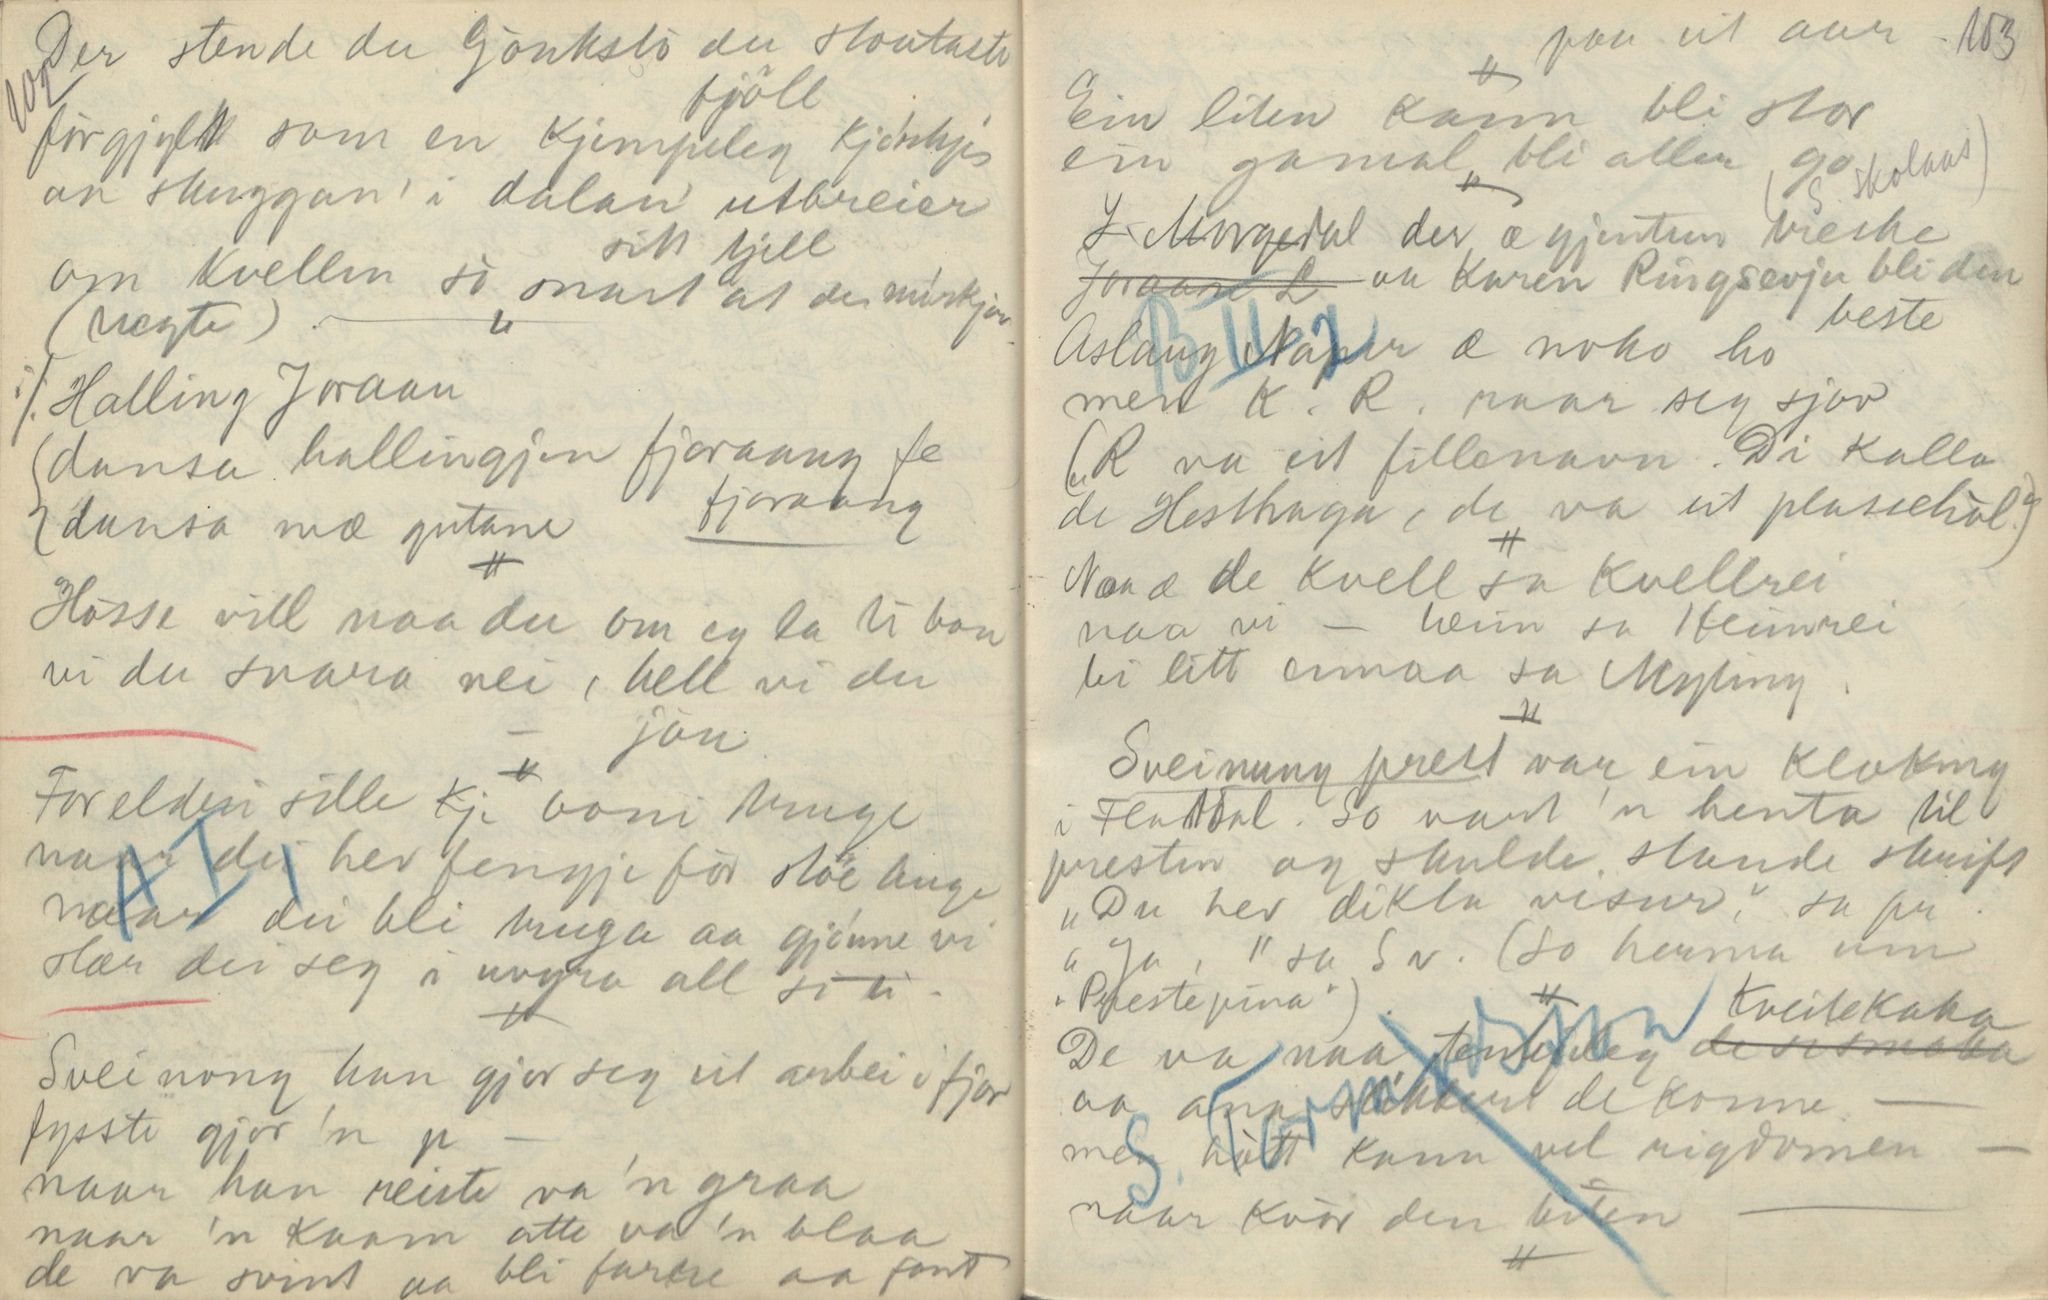 102
Der stende du Gjøukslö du stoutaste
fjöll
forgjyllt som en kjempeleg kjørkje
an skuggan' i dalan' utbreier
sitt tjell
om kvellen so snart at de mörkjar
(Vegte)
"
Halling Joraan
dansa hallingjen fjoraang fe
fjoraang
dansa mæ gutane
"
Hosse vill naa du om eg la ti ban
vi du svara nei, hell vi du
jau
"
Foreldri sille kji vori truge
A I 1
naar dei hev fengje för støe huge
naar dei bli truga aa gjönne vi
slær dei seg i uvyra all si ti.
"
Sveinong han gjor seg eit arbei i fjor
fysste gjor 'n p —
naar han reiste va 'n graa
naar 'n kaam atte va 'n blaa
de va svint aa bli farke aa fant
paa eit aar. 103
"
Ein liten kann bli stor
ein gamal bli aller go
"
(S. Skolaas)
I Morgedal der æ gjentun vieske
Joraand L aa Karen Ringsevju bli den
beste
B II 2
Aslaug Naper æ noko ho
men K. R. raar seg sjov
(R va eit fillenavn. Di kalla
de Hesthaga, de va eit plassehòl.)
"
Naa æ de kvell sa Kvellrei
naa vi — heim sa Heimrei
bi litt einaa sa Myting.
"
Sveinung prest var ein kloking
i Flatdal. So vart 'n henta til
presten og skulde stande skrift
"Du hev dikta visur," sa pr.
"Ja," sa Sv. (So herma um
"Prestepina").
"
Kveitekaka
De va naa temmeleg
aa ana sikkert de konne —
men hott kann vel rigdomen —
naar kvor den biten —
"